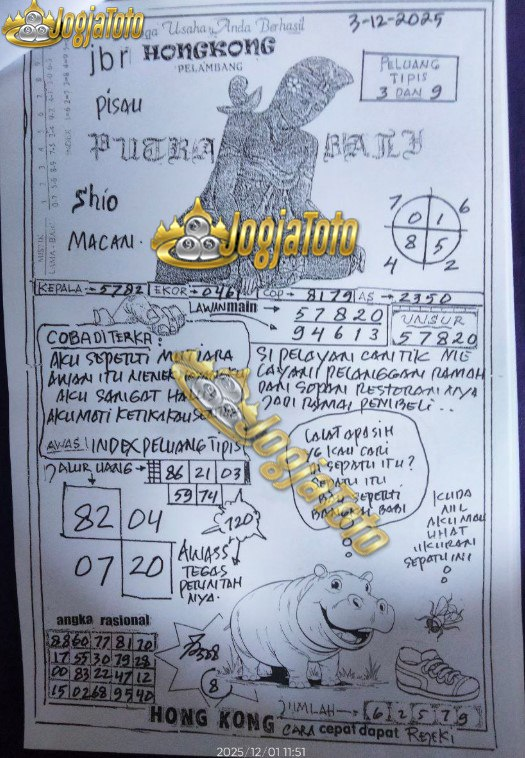 JogjaToto
Semoga Usaha Anda Berhasil
3-12-2025
jbr HONGKONG
PELAMBANG
PELUANG
TIPIS
3 DAN 9
PISAU
PUTRA BALI
Shio
MACAN.
JogjaToto
7 6
0 1
8 5
4 2
KEPALA → 5782 EKOR → 046 COP → 8179 AS → 2350
LAWAN main →
5 7 8 2 0
9 4 6 1 3
UNSUR
5 7 8 2 0
COBA DITERKA :
AKU SEPERTI MUTIARA
AWAN ITU
AKU SANGAT
AKU MATI KETIKA
AWAS INDEX PELUANG TIPIS
SI PELAYAN CANTIK ME
LAYANI PELANGGAN RAMAH
DAN SOPAN RESTORAN NYA
JADI RAMAI PEMBELI..
JogjaToto
ALUR UANG → 86 21 03
59 74
82 04
07 20
120
AWASS
TEGAS
PERINTAH
NYA.
LALAT APASIH
YG KAU CARI
DI SEPATU ITU?
SEPATU ITU
BAU SEPERTI
BANGKAI BABI
KUDA
NIL
AKU MAU
LIHAT
UKURAN
SEPATU INI
angka rasional
88 60 77 81 70
17 55 30 79 28
00 83 22 47 12
15 02 68 95 40
8
JUMLAH → 6 2 5 7 9
HONG KONG CARA cepat dapat REJEKI
2025/12/01 11:51